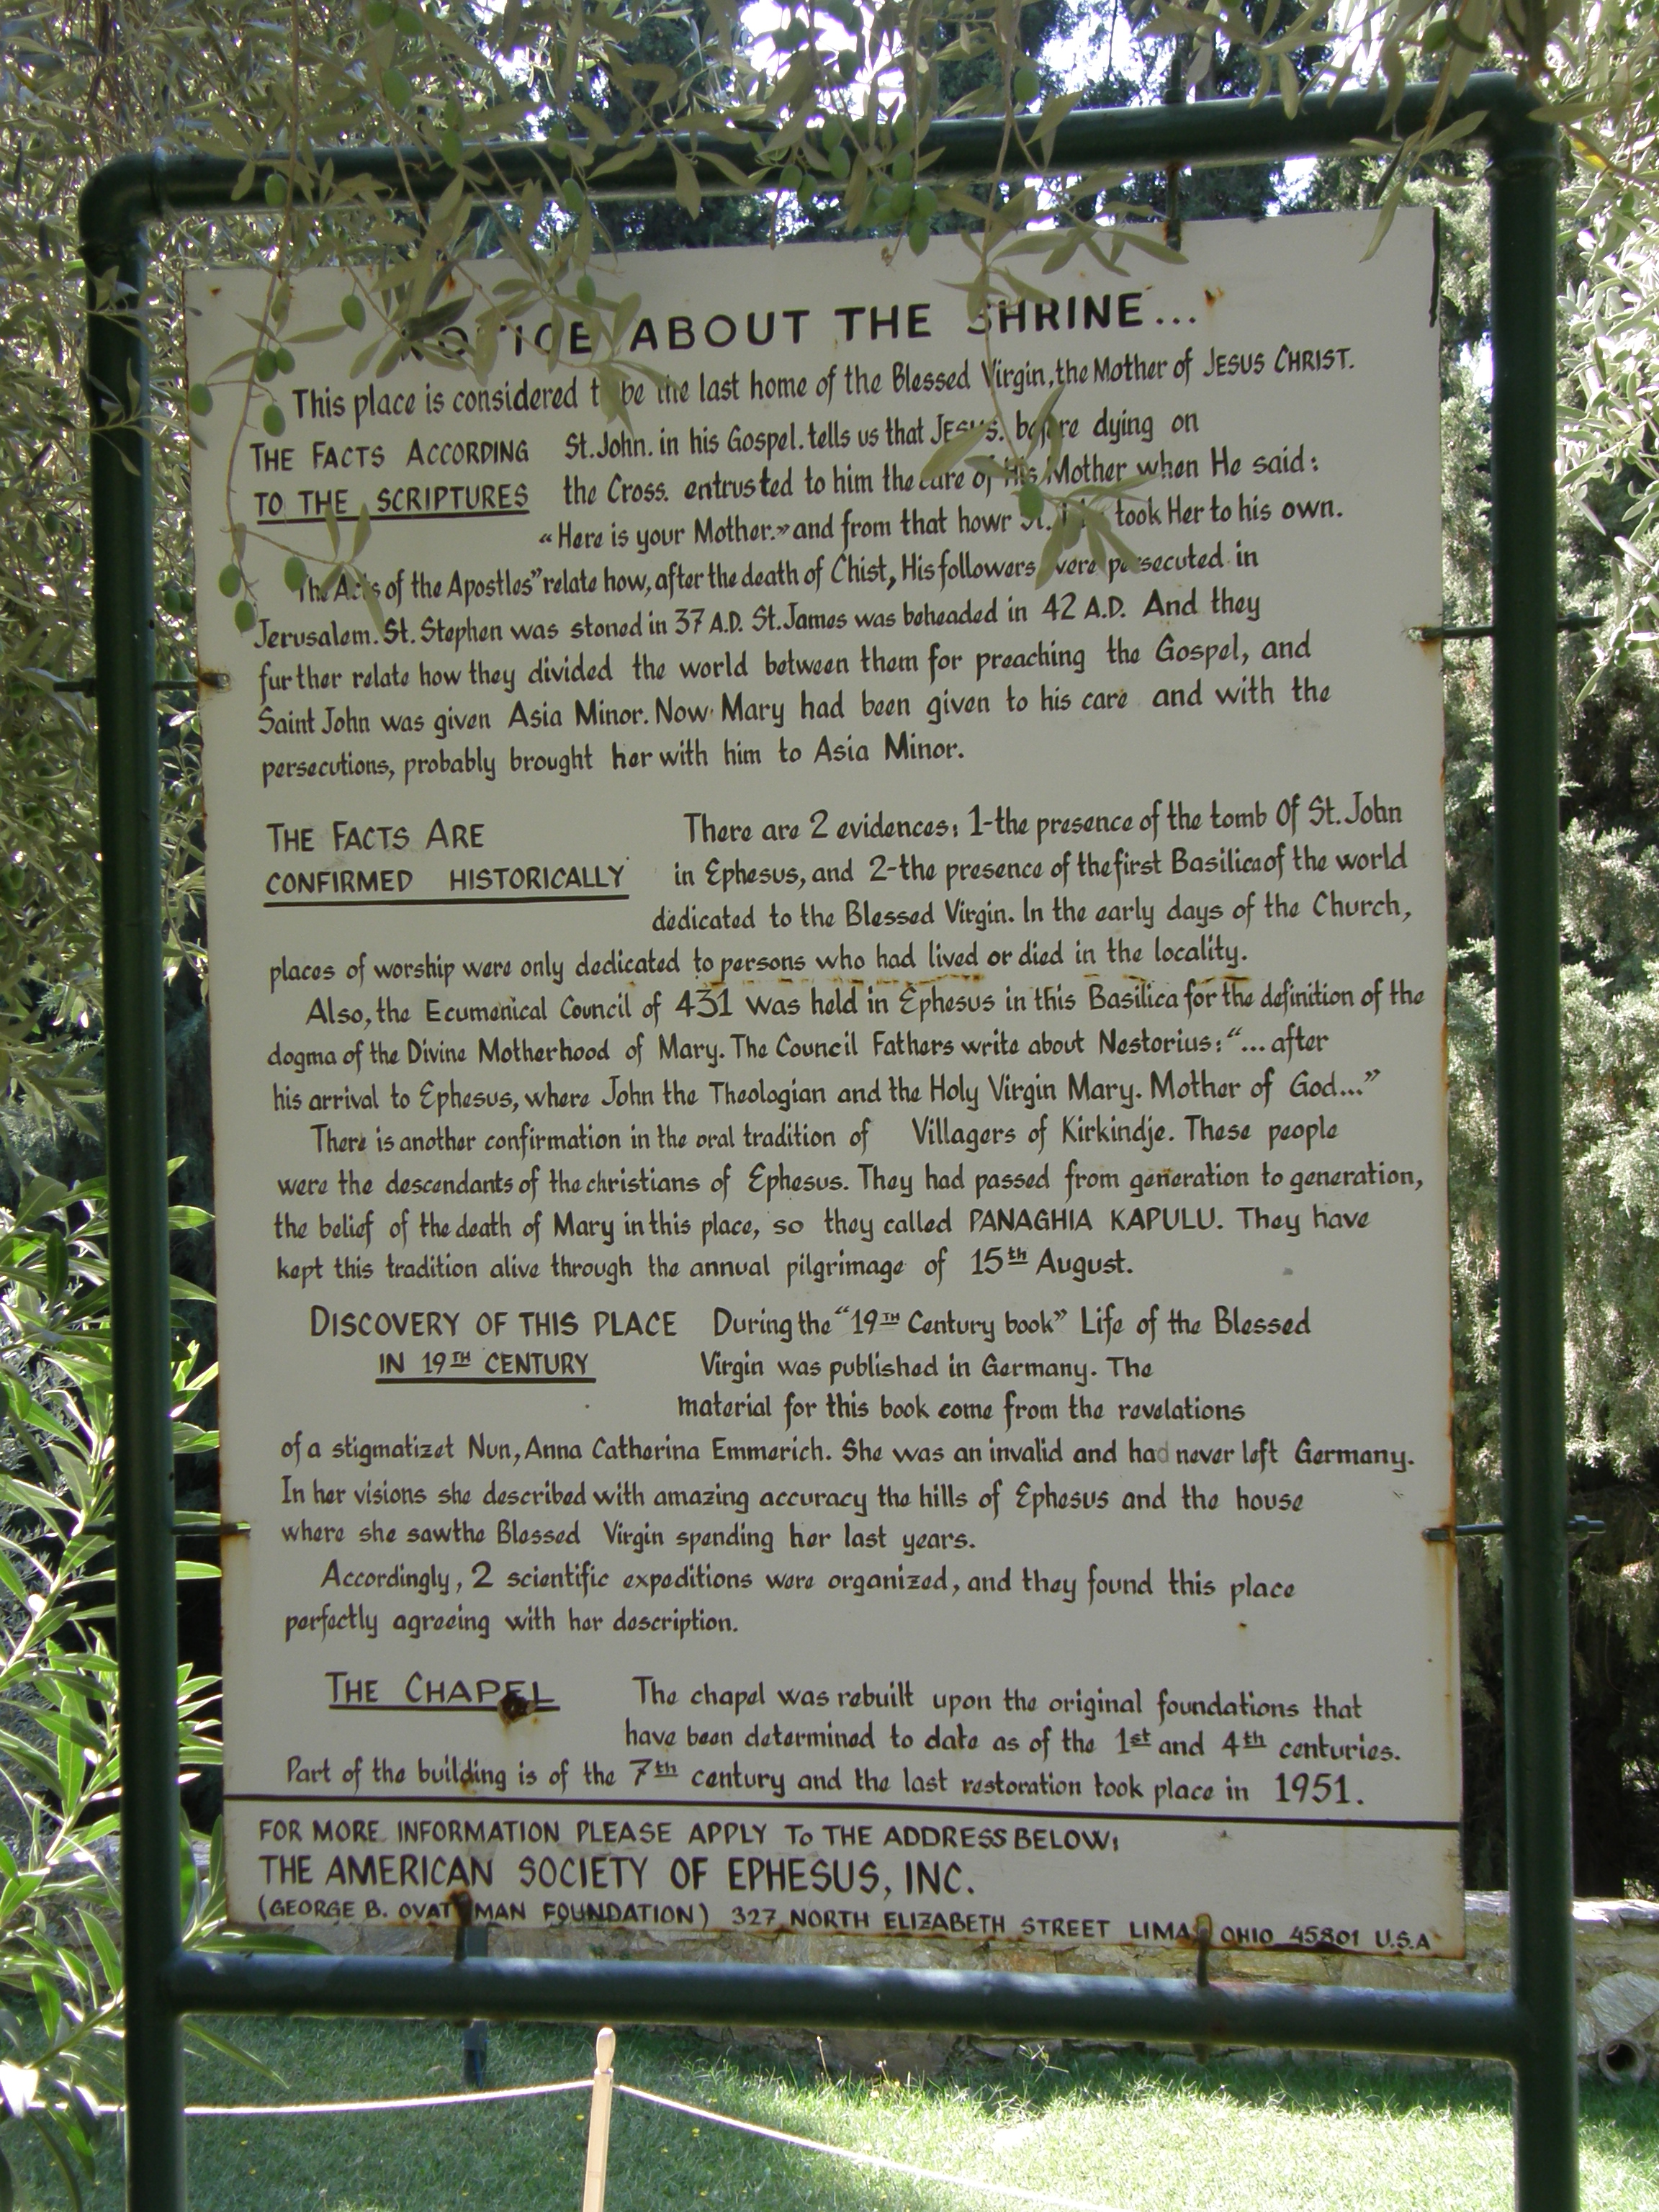 NOTICE ABOUT THE SHRINE...
This place is considered to be the last home of the Blessed Virgin, the Mother of JESUS CHRIST.
THE FACTS ACCORDING St. John. in his Gospel. tells us that JESUS. before dying on
TO THE SCRIPTURES the Cross. entrusted to him the care of His Mother when He said:
"Here is your Mother." and from that howr St. took Her to his own.
The Acts of the Apostles" relate how, after the death of Chist, His followers were persecuted in
Jerusalem. St. Stephen was stoned in 37 A.D. St. James was beheaded in 42 A.D. And they
further relate how they divided the world between them for preaching the Gospel, and
Saint John was given Asia Minor. Now Mary had been given to his care and with the
persecutions, probably brought her with him to Asia Minor.
THE FACTS ARE There are 2 evidences: 1-the presence of the tomb Of St. John
CONFIRMED HISTORICALLY in Ephesus, and 2-the presence of the first Basilica of the world
dedicated to the Blessed Virgin. In the early days of the Church,
places of worship were only dedicated to persons who had lived or died in the locality.
Also, the Ecumenical Council of 431 was held in Ephesus in this Basilica for the definition of the
dogma of the Divine Motherhood of Mary. The Council Fathers write about Nestorius: "... after
his arrival to Ephesus, where John the Theologian and the Holy Virgin Mary. Mother of God..."
There is another confirmation in the oral tradition of Villagers of Kirkindje. These people
were the descendants of the christians of Ephesus. They had passed from generation to generation,
the belief of the death of Mary in this place, so they called PANAGHIA KAPULU. They have
kept this tradition alive through the annual pilgrimage of 15th August.
DISCOVERY OF THIS PLACE During the "19TH Century book" Life of the Blessed
IN 19TH CENTURY Virgin was published in Germany. The
material for this book come from the revelations
of a stigmatizet Nun, Anna Catherina Emmerich. She was an invalid and had never left Germany.
In her visions she described with amazing accuracy the hills of Ephesus and the house
where she saw the Blessed Virgin spending her last years.
Accordingly, 2 scientific expeditions were organized, and they found this place
perfectly agreeing with her description.
THE CHAPEL The chapel was rebuilt upon the original foundations that
have been determined to date as of the 1st and 4th centuries.
Part of the building is of the 7th century and the last restoration took place in 1951.
FOR MORE INFORMATION PLEASE APPLY To THE ADDRESS BELOW:
THE AMERICAN SOCIETY OF EPHESUS, INC.
(GEORGE B. FOUNDATION) 327 NORTH ELIZABETH STREET LIMA OHIO 45801 U.S.A